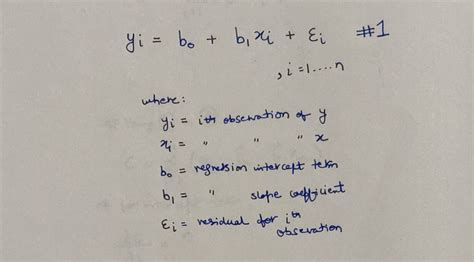 yi = b₀ + b₁xi + εi #1
, i = 1....n
where:
yi = ith observation of y
xi = " " " x
b₀ = regression intercept term
b₁ = " slope coefficient
εi = residual for ith
observation